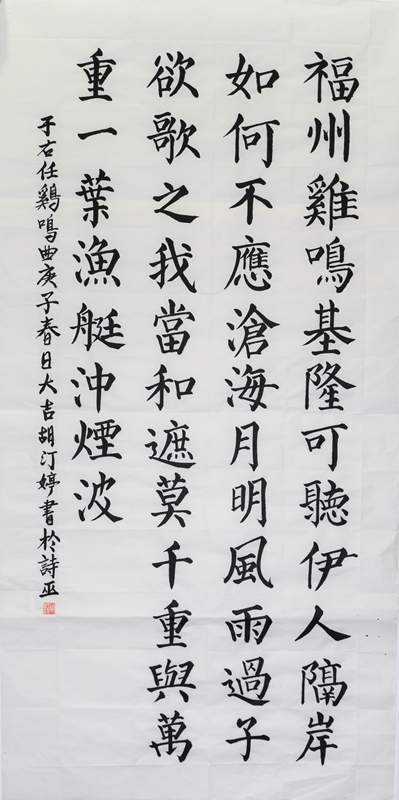 福州雞鳴基隆可聽伊人隔岸
如何不應滄海月明風雨過子
欲歌之我當和遮莫千重與萬
重一葉漁艇沖煙波
于右任鷄鳴曲庚子春日大吉胡汀婷書於詩巫